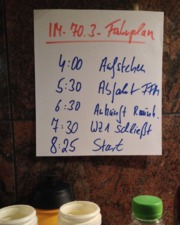 IM. 70.3 - Fahrplan
4:00 Aufstehen
5:30 Abfahrt FFM
6:30 Ankunft
7:30 WZ1 schließt
8:25 Start